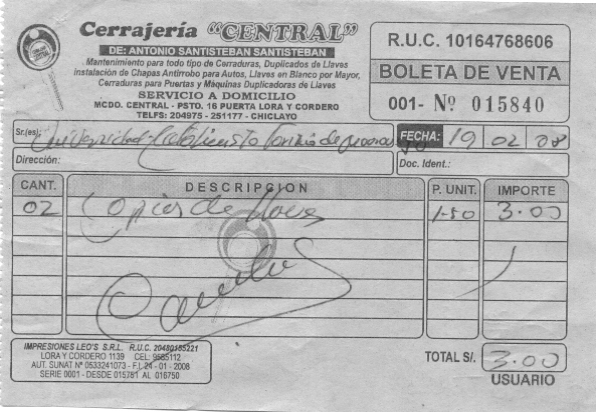 Cerrajería "CENTRAL"
DE: ANTONIO SANTISTEBAN SANTISTEBAN
Mantenimiento para todo tipo de Cerraduras, Duplicados de Llaves
instalación de Chapas Antirrobo para Autos, Llaves en Blanco por Mayor,
Cerraduras para Puertas y Máquinas Duplicadoras de Llaves
SERVICIO A DOMICILIO
MCDO. CENTRAL - PSTO. 16 PUERTA LORA Y CORDERO
TELFS: 204975 - 251177 - CHICLAYO
R.U.C. 10164768606
BOLETA DE VENTA
001- Nº 015840
Sr.(es): Universidad Católica Sto Toribio de
FECHA: 19 02 08
Dirección:
Doc. Ident.:
CANT. DESCRIPCION P. UNIT. IMPORTE
02 Copias de llaves 1.50 3.00
IMPRESIONES LEO'S S.R.L. R.U.C. 20480155221
LORA Y CORDERO 1139 CEL: 9585112
AUT. SUNAT Nº 0533241073 - F.I. 24 - 01 - 2008
SERIE 0001 - DESDE 015781 AL 016750
TOTAL S/. 3.00
USUARIO